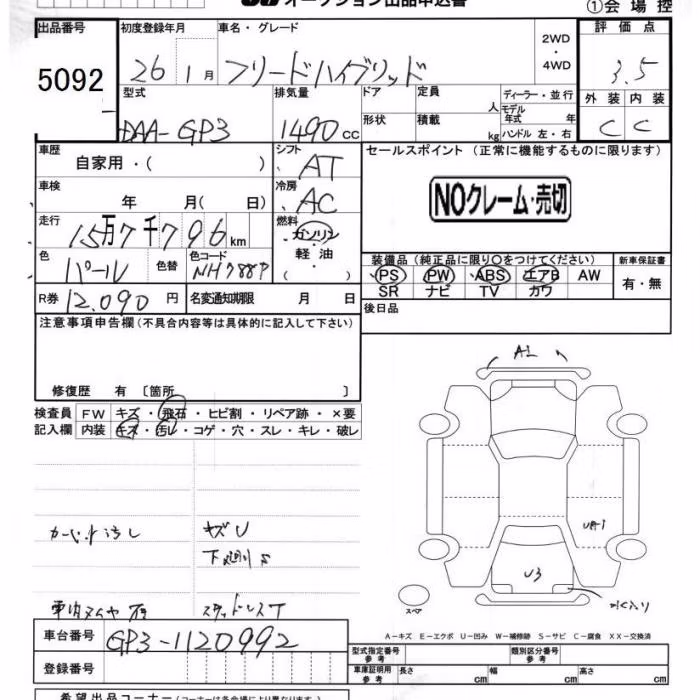 オークション出品申込書
①会場控
出品番号
5092
初度登録年月
26 1月
車名・グレード
フリードハイブリッド
2WD
・
4WD
評価点
3.5
外装 内装
C C
型式
DAA-GP3
排気量
1490 CC
ドア
形状
定員
人
積載
kg
ディーラー・並行
モデル年式 年
ハンドル 左・右
車歴
自家用・( )
シフト
AT
セールスポイント (正常に機能するものに限ります)
NOクレーム・売切
車検
年 月( 日)
冷房
AC
走行
15万7千796km
燃料
ガソリン
軽油
( )
色
パール
色替
色コード
NH788P
装備品 (純正品に限り○をつけてください)
新車保証書
PS PW ABS エアB AW
SR ナビ TV カワ
有・無
R券 12,090円
名変通知期限 月 日
後日品
注意事項申告欄 (不具合内容等は具体的に記入して下さい)
修復歴 有 〔箇所 〕
検査員
記入欄
FW キズ・飛石・ヒビ割・リペア跡・×要
内装 キズ・汚レ・コゲ・穴・スレ・キレ・破レ
A1
UA1
U3
スペア
キズU
スタッドレスT
A-キズ E-エクボ U-凹み W-補修跡 S-サビ C-腐食 XX-交換済
車台番号
GP3-1120992
登録番号
型式指定番号
参考
類別区分番号
参考
車庫証明用
参考
長さ cm 幅 cm 高さ cm
希望出品コーナー